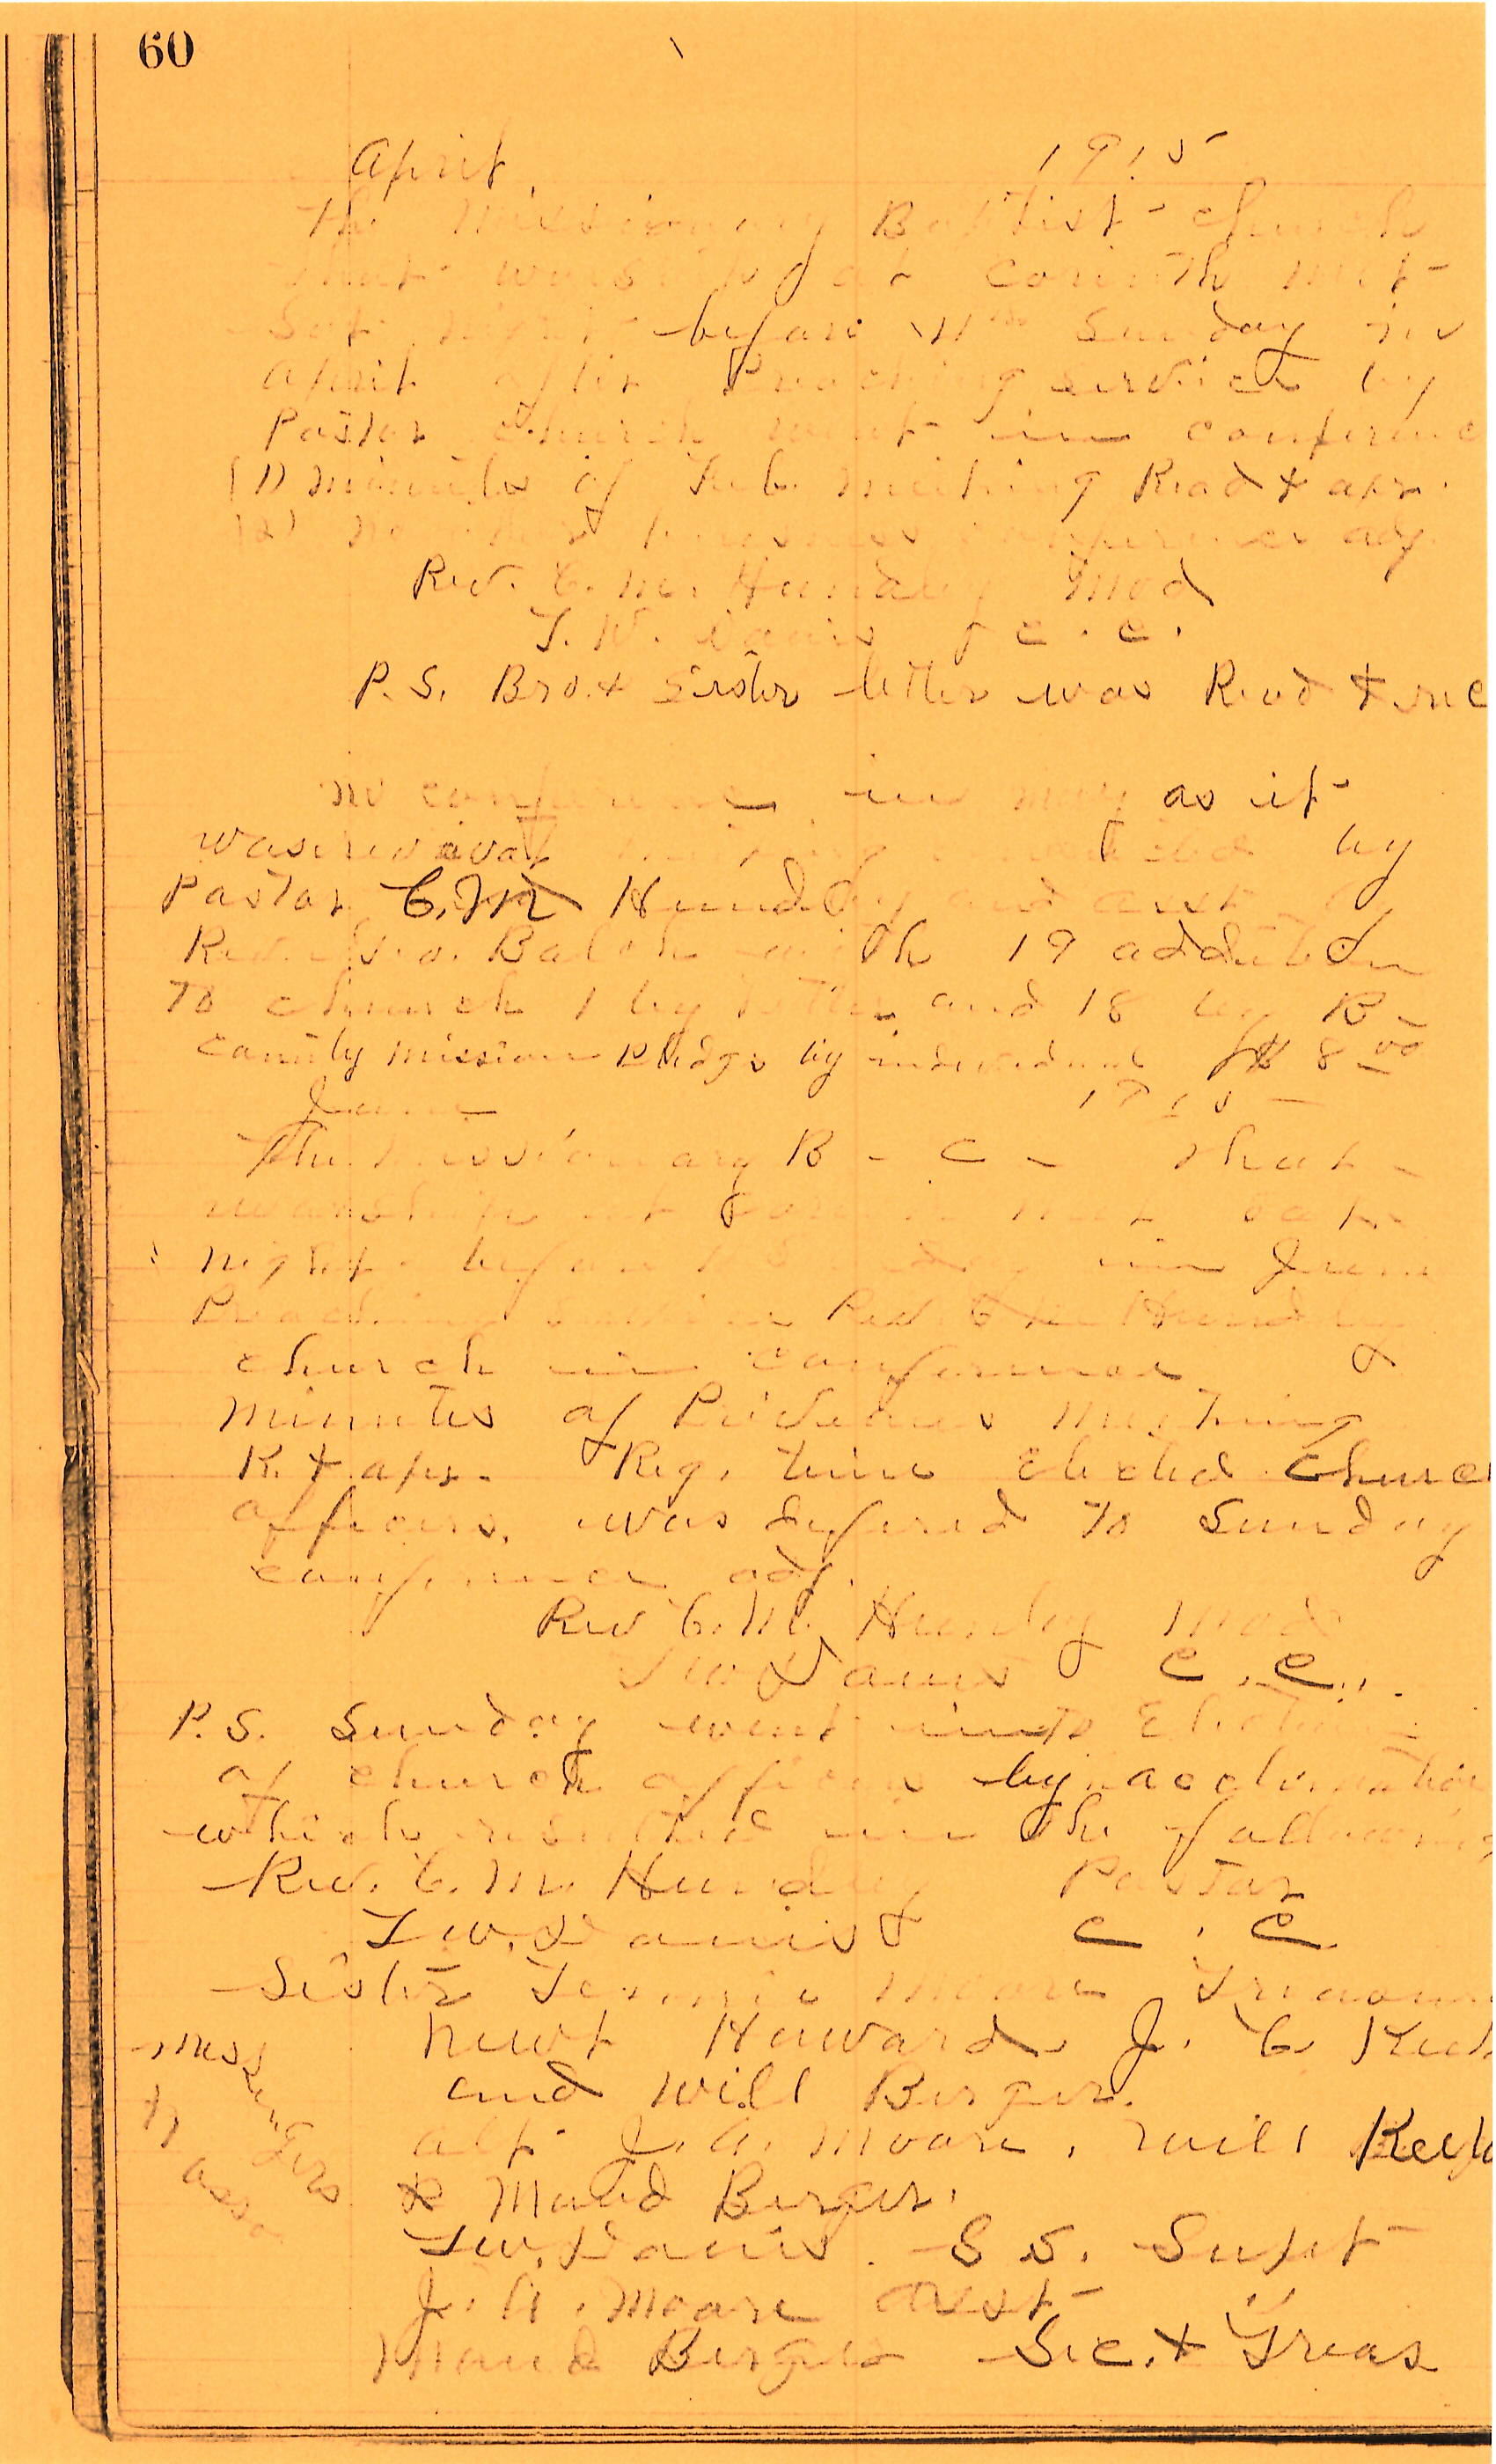 60
April 1915
The Missionary Baptist Church
that worship at Corinth met
Sat night before Sunday in
April after Preaching service by
Pastor Church went in conferenc
(1) minutes of Feb. meeting Read & apr.
(2) no other business conference adj.
Rev. C. M. Hundley Mod
T. W. Davis C. C.
P.S. Bro. & Sister letter was Read & rec
no conference in may as it
was revival meeting by
Pastor C. M. Hundley and asst by
Rev. Balch with 19 addition
To church 1 by letter and 18 by B-
County mission Pledge by individual $8 00
June 1915
The Missionary B - C - that
worship at met Sat
night before Sunday in June
Preaching service Rev. C M Hundley
church in conference
minutes of Previous meeting
R. & apr. Reg. time elected Churc
officers. was defered To Sunday
conference adj.
Rev C. M. Hundley Mod
T W Davis C. C.
P.S. Sunday went into Election
of church officers by acclimation
which resulted in the following
Rev. C. M. Hundley Pastor
T. W. Davis C. C.
Sister Moore Treasur
Messengers to asso
Newt Howard J. C.
and Will Burger.
alt J. A. Moore, Will
& Maud Burger.
T. W. Davis. S. S. Supt
J. A. Moore Asst
Maud Burger Sec. & Treas